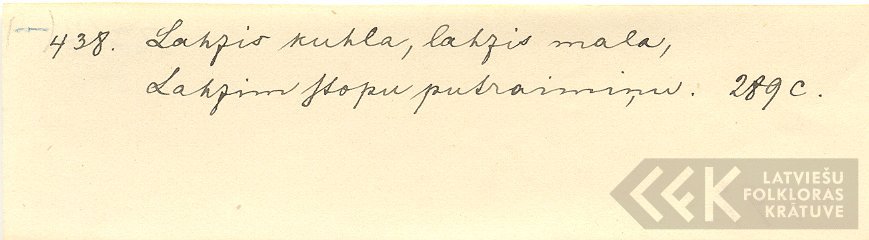 (1) 438. Lahzis kuhla, lahzis mala,
Lahzim stopu putraimiņu. 289 c.
LATVIEŠU
FOLKLORAS
KRĀTUVE